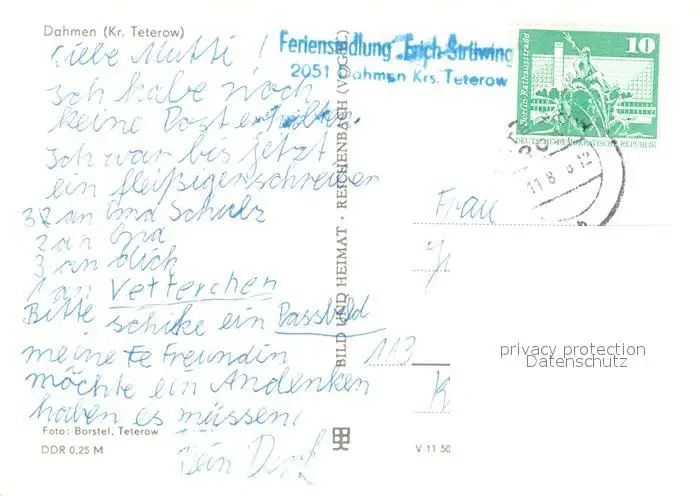 Dahmen (Kr. Teterow)
Liebe Mutti!
Ich habe noch
keine Post erhalten.
Ich war bis jetzt
ein fleißigenschreiber
3 an Oma Schulz
2 an Oma
3 an dich
1 an Vetterchen
Bitte schike ein Passbild
meine Freundin
möchte ein Andenken
haben es müssen,
Dein Dirk
Foto: Borstel, Teterow
DDR 0,25 M
BILD UND HEIMAT · REICHENBACH (VOGEL)
V 11 50
Feriensiedlung "Erich Strüwing
2051 Dahmen Krs. Teterow
10
Berlin-Rathausstraße
DEUTSCHE DEMOKRATISCHE REPUBLIK
11.8. 8 12
Frau
113
K
privacy protection
Datenschutz